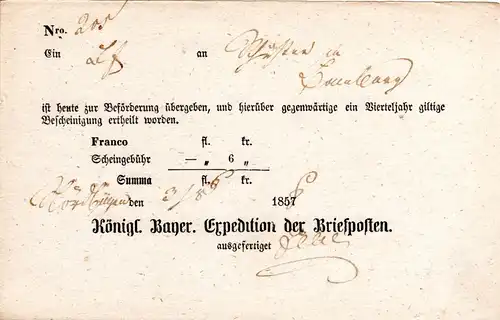 Nro. 200
Ein an
in
Bamberg
ist heute zur Beförderung übergeben, und hierüber gegenwärtige ein Vierteljahr giltige
Bescheinigung ertheilt worden.
Franco fl. kr.
Scheingebühr — „ 6 „
Summa fl. 6 kr.
den 1858
Königl. Bayer. Expedition der Briefposten.
ausgefertiget